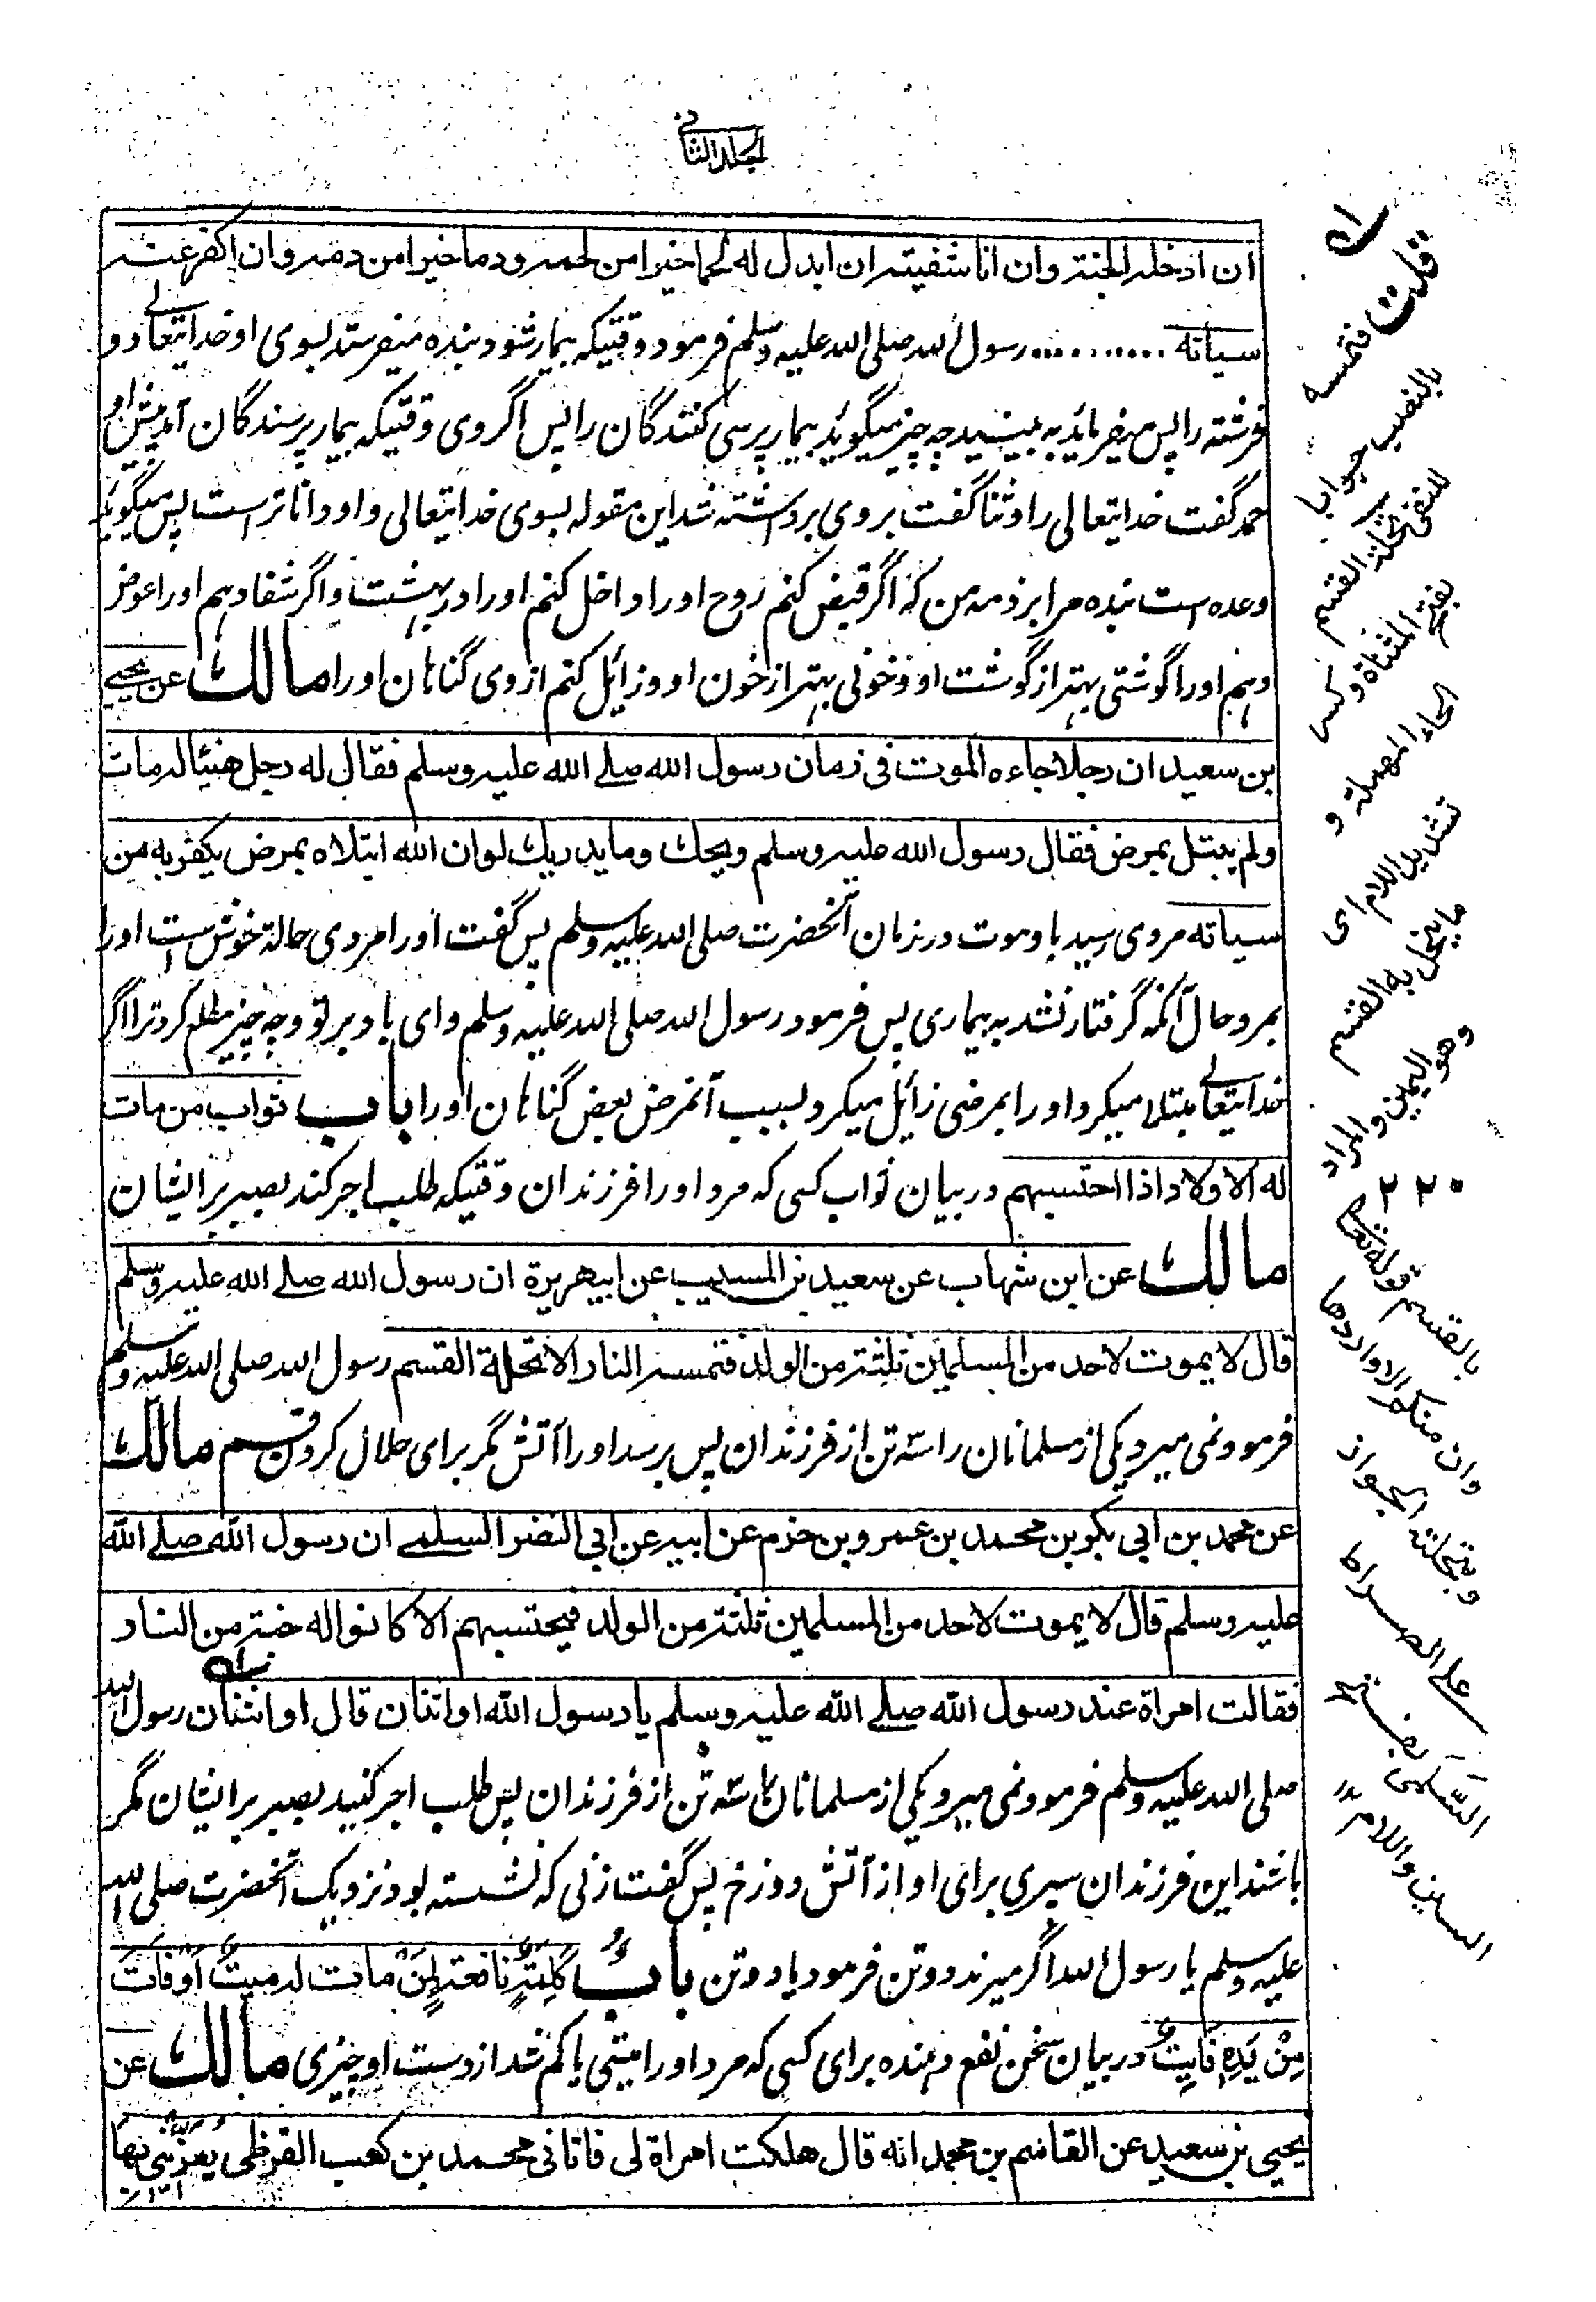 الجلد الثانی
ان ادخله الجنة وان انا شفیته ان ابدل له لحما خیرا من لحمه ودما خیرا من دمه وان اکفر عنه
سیاته .......... رسول الله صلی الله علیه وسلم فرمود وقتیکه بیمار شود بنده میفرستد بسوی او خدایتعالے دو
فرشته را پس میفرماید به بینید چه چیز میگوید بیمار پرسی کنندگان را پس اگر وی وقتیکه بیمار پرسندگان آمد پیش او
حمد گفت خدایتعالی را و ثنا گفت بروی برداشته شد این مقوله بسوی خدایتعالی و او داناتر است پس میگوید
وعده است بنده مرا بر ذمه من که اگر قبض کنم روح اورا داخل کنم اورا در بهشت و اگر شفا دهم اورا عوض
دهم اورا گوشتی بهتر از گوشت او و خونی بهتر از خون او و زائل کنم از وی گناهان اورا مالك عن یحیے
بن سعید ان رجلا جاءه الموت فی زمان رسول الله صلے الله علیه وسلم فقال له رجل هنیئا له مات
ولم یبتل بمرض فقال رسول الله علیه وسلم ویحك وما یدریك لو ان الله ابتلاه بمرض یکفر به من
سیاته مردی رسید باو موت در زمان آنحضرت صلی الله علیه وسلم پس گفت اورا مردی حالة خوش است اورا
بمرد حال آنکه گرفتار نشد به بیماری پس فرمود رسول الله صلی الله علیه وسلم وای باد بر تو و چه چیز مطلع کرد ترا اگر
خدایتعالے مبتلا میکرد اورا بمرضی زائل میکرد بسبب آنمرض بعض گناهان اورا باب ثواب من مات
له الاولاد اذا احتسبهم در بیان ثواب کسی که مرد اورا فرزندان وقتیکه طلب اجر کند بصبر بر ایشان
مالك عن ابن شهاب عن سعید بن المسیب عن ابیهریرة ان رسول الله صلے الله علیه وسلم
قال لا یموت لاحد من المسلمین ثلثة من الولد فتمسه النار الا تحلة القسم رسول الله صلی الله علیه وسلم
فرمود نمی میرد یکی از مسلمانان را سه تن از فرزندان پس برسد اورا آتش مگر برای حلال کردن قسم مالك
عن محمد بن ابی بکر بن محمد بن عمرو بن حزم عن ابیه عن ابی النضر السلمے ان رسول الله صلے الله
علیه وسلم قال لا یموت لاحد من المسلمین ثلثة من الولد فیحتسبهم الا کانوا له جنة من النار
فقالت امراة عند رسول الله صلے الله علیه وسلم یا رسول الله او اثنان قال او اثنان رسول الله
صلی الله علیه وسلم فرمود نمی میرد یکی از مسلمانان را سه تن از فرزندان پس طلب اجر کنید بصبر بر ایشان مگر
باشند این فرزندان سپری برای او از آتش دوزخ پس گفت زنی که نشسته بود نزدیک آنحضرت صلی الله
علیه وسلم یا رسول الله اگر میرند دو تن فرمود یا دو تن بابٌ کَلِمَةٍ نافعة لِمَنْ مات له میتٌ اَوْ فَاتَ
مِنْ یَدِهٖ فَایِتٌ در بیان سخن نفع دهنده برای کسی که مرد اورا میتی یا گم شد از دست او چیزی مالك عن
یحیی بن سعید عن القاسم بن محمد انه قال هلکت امراة لی فاتانی محمد بن کعب القرظی یُعَزِّیْنی بها
قلت فتمسه
بالنصب جوابا
للنفی تحلة القسم
بفتح المثناة وکسر
الحاء المهملة و
تشدید اللام ای
ما ینحل به القسم
وهو الیمین والمراد
۲۲۰
بالقسم قوله تعالے
وان منکم الا واردها
وتحلته الجواز
علی الصراط
السلمی بفتح
السین واللام